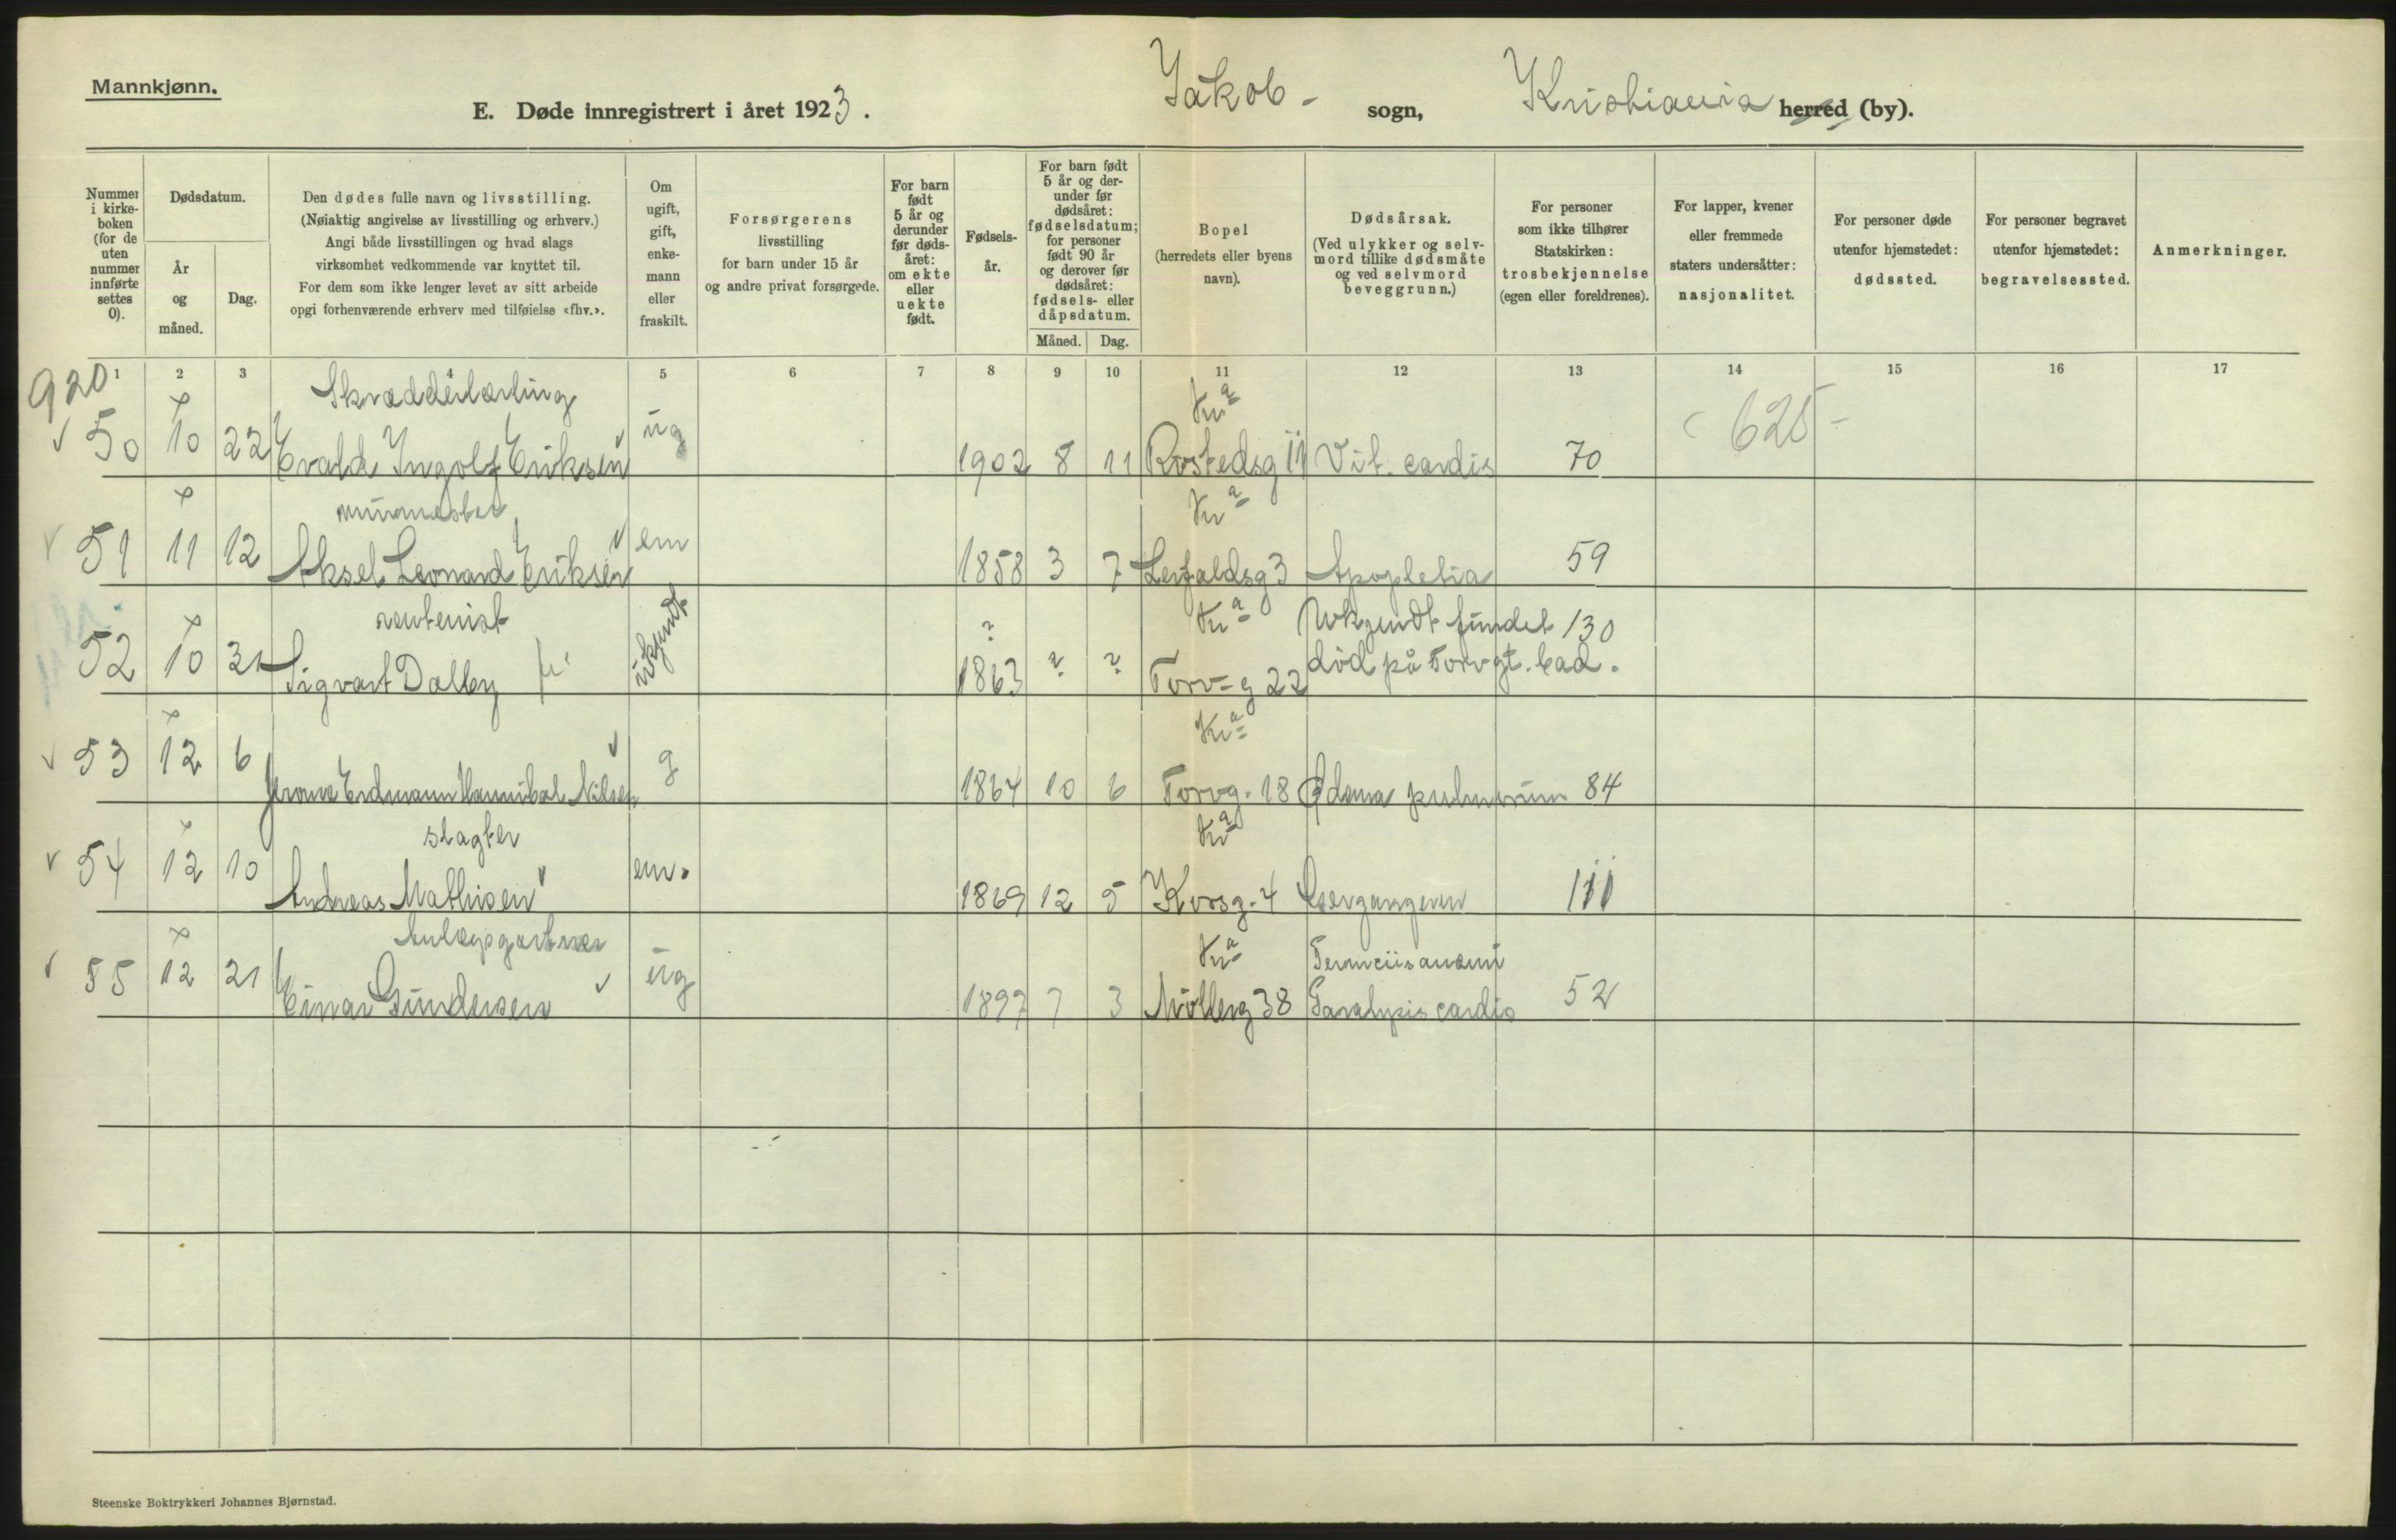 Mannkjønn.
E. Døde innregistrert i året 1923.
Jakob - sogn, Kristiania herred (by).
Nummer i kirke- boken (for de uten nummer innførte settes 0).
Dødsdatum.
År og måned.
Dag.
Den dødes fulle navn og livsstilling.
(Nøiaktig angivelse av livsstilling og erhverv.)
Angi både livsstillingen og hvad slags
virksomhet vedkommende var knyttet til.
For dem som ikke lenger levet av sitt arbeide
opgi forhenværende erhverv med tilføielse «fhv.».
Om ugift, gift, enke- mann eller fraskilt.
Forsørgerens
livsstilling
for barn under 15 år
og andre privat forsørgede.
For barn født 5 år og derunder før døds- året: om ekte eller uekte født.
Fødsels- år.
For barn født 5 år og der- under før dødsåret: fødselsdatum; for personer født 90 år og derover før dødsåret: fødsels- eller dåpsdatum.
Måned. Dag.
Bopel
(herredets eller byens navn).
Dødsårsak.
(Ved ulykker og selv- mord tillike dødsmåte og ved selvmord beveggrunn.)
For personer som ikke tilhører Statskirken: trosbekjennelse (egen eller foreldrenes).
For lapper, kvener eller fremmede staters undersåtter: nasjonalitet.
For personer døde utenfor hjemstedet: dødssted.
For personer begravet utenfor hjemstedet: begravelsessted.
Anmerkninger.
1 2 3 4 5 6 7 8 9 10 11 12 13 14 15 16 17
920
Skrædderlærling Kr.a
50 10 22 Evald Ingolf Eriksen ug 1902 8 11 Rostedsg 11 Vit. cordis 70 625 -
murmester Kr.a
51 11 12 Aksel Leonard Eriksen em 1858 3 7 Leirfaldsg 3 Apoplexia 59
rentenist ? Kr.a Ukjendt fundet 130
52 10 31 Sigvart Dalby ukjendt 1863 ? ? Torvg 22 død på Torvgt. bad.
Kr.a
53 12 6 Erdmann Hannibal Nilsen g 1864 10 6 Torvg. 18 Ødema pulmonum 84
slagter Kr.a
54 12 10 Andreas Mathisen em. 1869 12 5 Korsg. 4 110
Anlægsgartner Kr.a
55 12 21 Einar Gundersen ug 1897 7 3 Møllerg 38 Paralysis cordis 52
Steenske Boktrykkeri Johannes Bjørnstad.